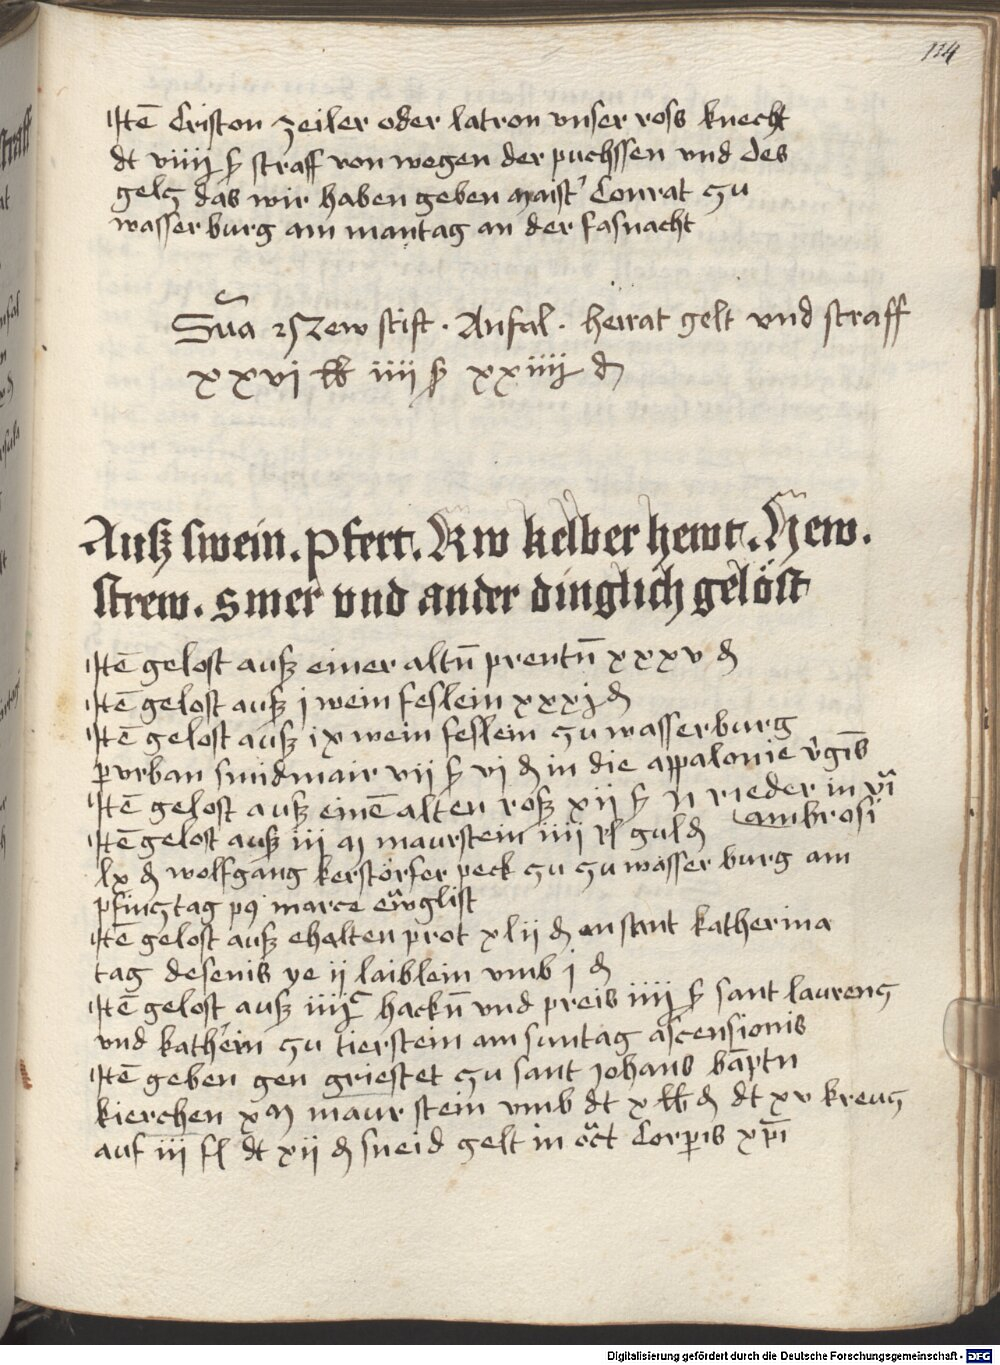 114
Itē Criston zeiler oder latron vnser ross knecht
dt viiij ß straff von wegen der puchssen vnd des
geltz das wir haben geben maist' Conrat zu
wasserburg am mantag an der fasnacht
Sūa Zew stift · Anfal · heirat gelt vnd straff
xxvi lb iiij ß xxiiij d
Auß swein . pfert . Kw kelber hewt . Hew .
strew . smer vnd ander dinglich gelöst
Itē gelost auß einer altn̄ prentn̄ xxxv d
Itē gelost auß j wein feslein xxxj d
Itē gelost auß ix wein feslein zu wasserburg
p vrban smidmair vij ß vi d in die appalonie v'gīs
Itē gelost auß einē alten roß xij ß N rieder in vī
ambrosi
Itē gelost auß iij M maurstein iiij rh guld
lx d wolfgang kerstorfer peck zu zu wasserburg am
pfincztag p9 marce ewglist
Itē gelost auß ehalten prot xlij d an sant katherina
tag desenis ye ij laiblein vmb j d
Itē gelost auß iiijC hackn̄ vnd preis iiij ß sant laurencz
vnd kath'ein zu tierstein am suntag ascensionis
Itē geben gen griestet zu sant Johans bāptn
kierchen x M maurstein vmb dt x lb d dt xv kreucz
auf iij fl dt xij d sneid gelt in oct Corpis xp̄i
Digitalisierung gefördert durch die Deutsche Forschungsgemeinschaft - DFG